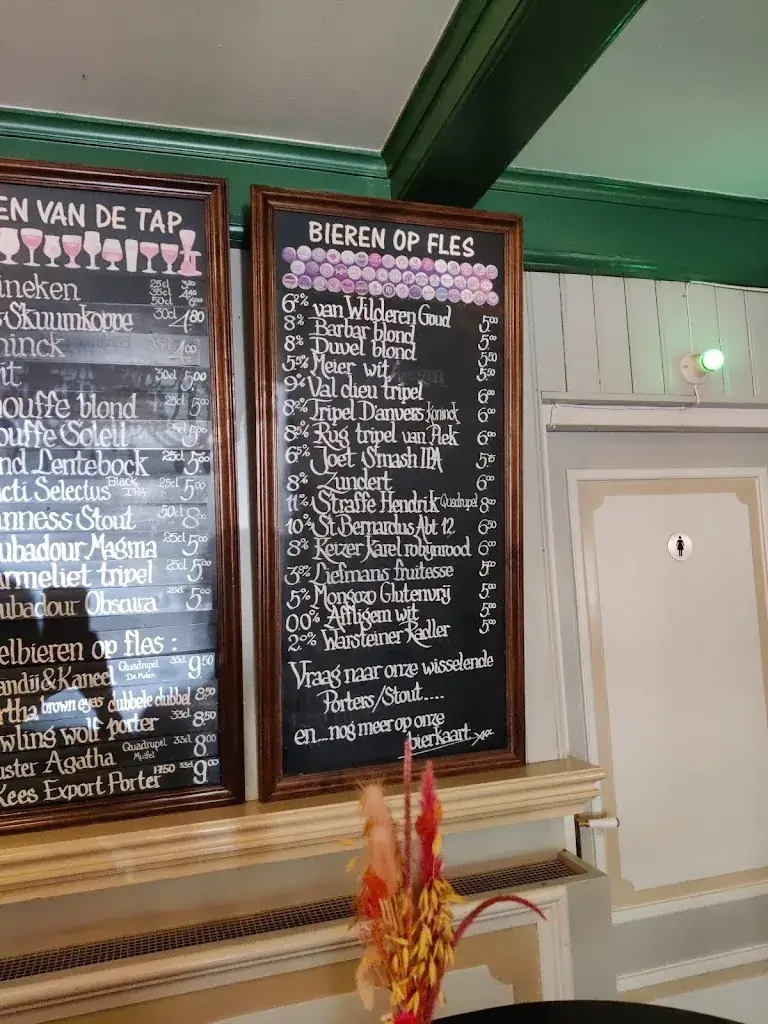 EN VAN DE TAP
ineken 25cl
35cl
50cl
Skuumkoppe 30cl 4,80
ninck 4,00
it 30cl 5,00
houffe blond 25cl 5,00
ouffe Soleil 25cl 5,00
nd Lentebock 25cl 5,00
cti Selectus Black IPA 25cl 5,00
nness Stout 50cl 8,00
ubadour Magma 25cl 5,00
rmeliet tripel 25cl 5,00
ubadour Obscura 25cl 5,00
elbieren op fles :
andij & Kaneel Quadrupel De Molen 33cl 9,50
rtha brown eyes dubbele dubbel 8,50
wling wolf porter 33cl 8,50
uster Agatha Quadrupel Muifel 33cl 8,00
Kees Export Porter 1750 33cl 9,00
BIEREN OP FLES
6,2% van Wilderen Goud 5,00
8% Barbar blond 5,00
8% Duvel blond 5,50
5,5% Meier wit 5,50
9% Val dieu tripel 6,00
8,2% Tripel D'anvers Koninck 6,00
8,5% Rug tripel van Piek 6,00
6,5% Joet Smash IPA 5,75
8% Zundert 6,00
11% Straffe Hendrik Quadrupel 8,00
10% St. Bernardus Abt 12 6,50
8% Keizer Karel robijnrood 6,00
3,8% Liefmans fruitesse 5,00
5% Mongozo Glutenvrij 5,00
0,0% Affligem wit 5,00
2,0% Warsteiner Radler 5,00
Vraag naar onze wisselende
Porters/Stout....
en...nog meer op onze
bierkaart.